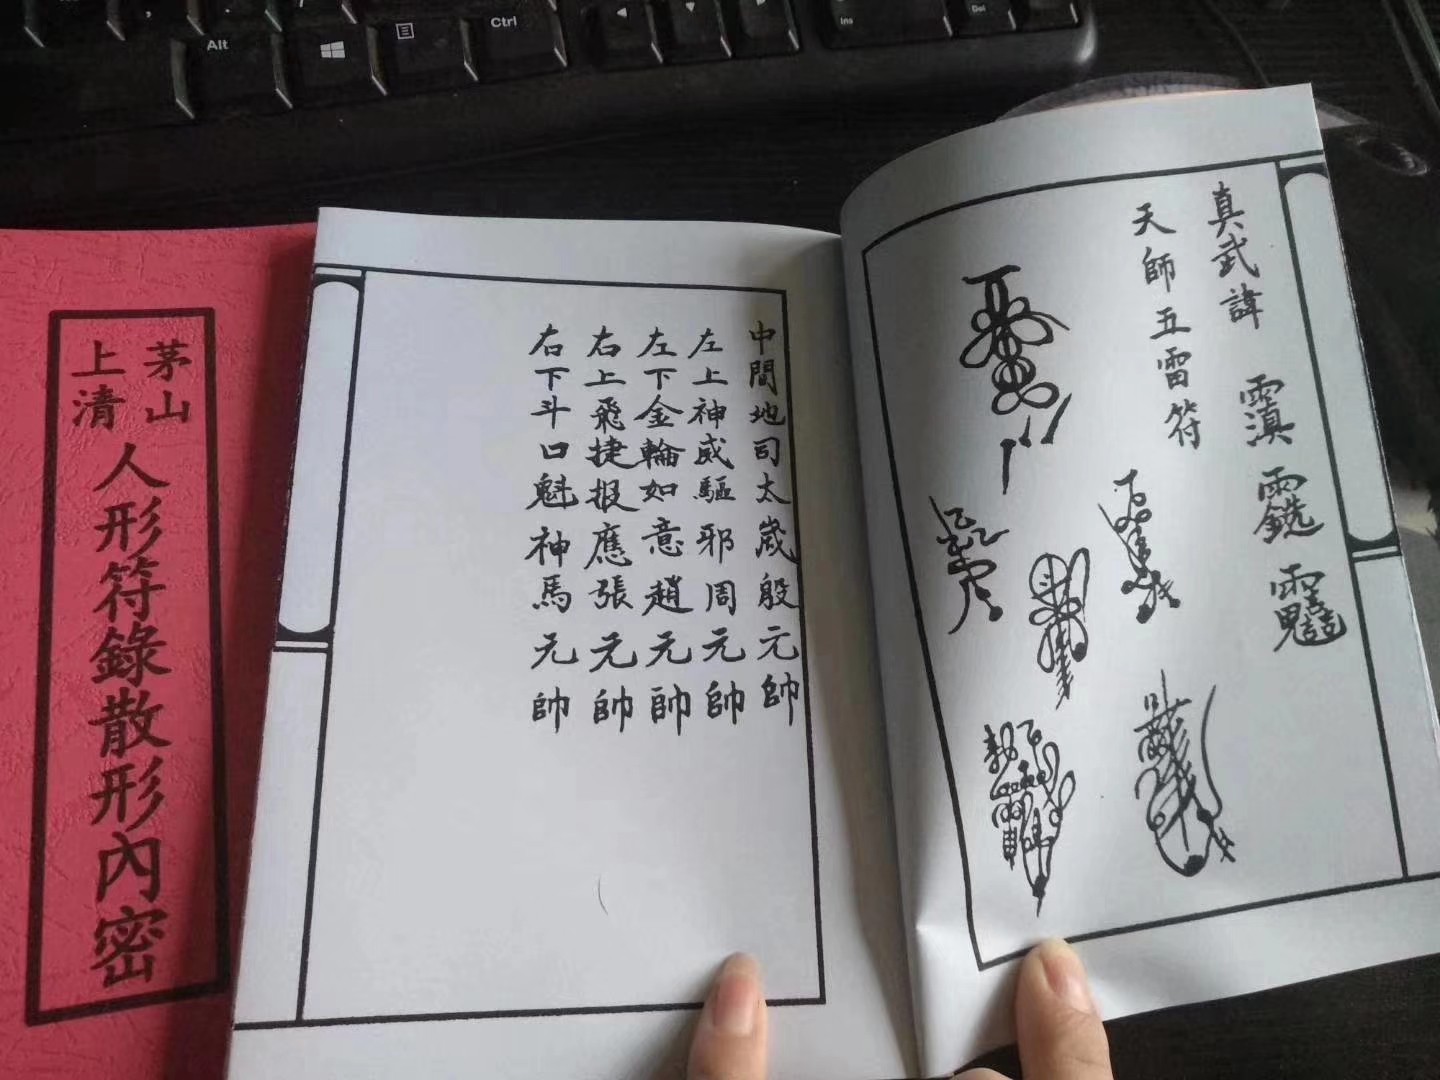 Alt
Ctrl
Ins
Del
茅山
上清
人形符錄散形內密
真武諱
天師五雷符
中間地司太歲殷元帥
左上神威驅邪周元帥
左下金輪如意趙元帥
右上飛捷报應張元帥
右下斗口魁神馬元帥